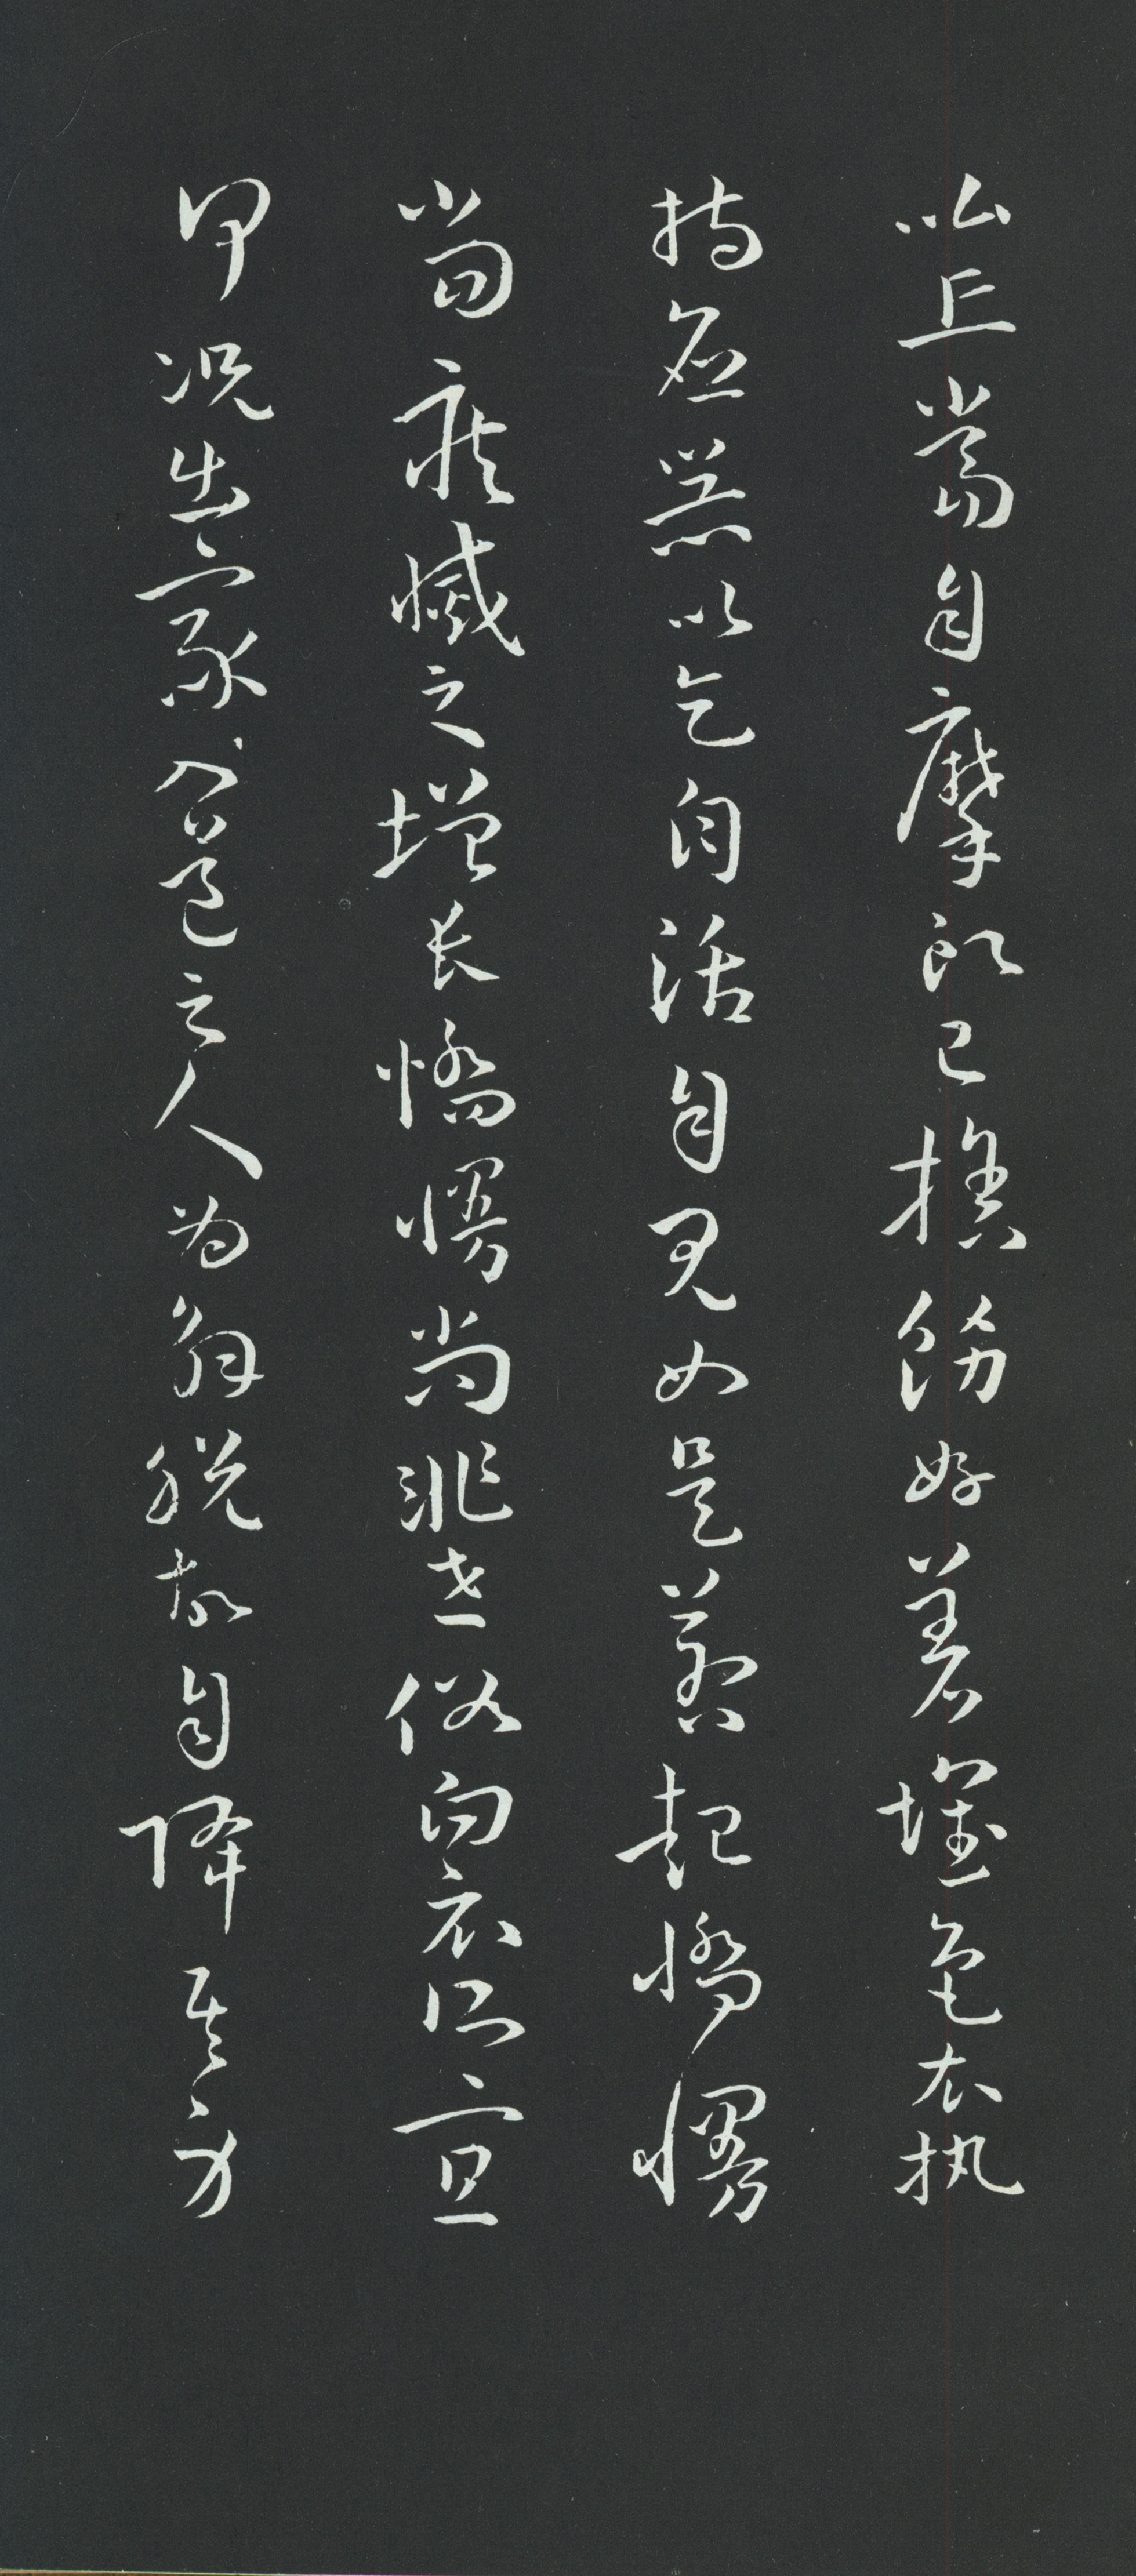 比丘當自摩頭已捨飾好著壞色衣執
持應器以乞自活自見如是若起憍慢
當疾滅之增長憍慢尚非世俗白衣所宜
何況出家入道之人為解脫故自降其身